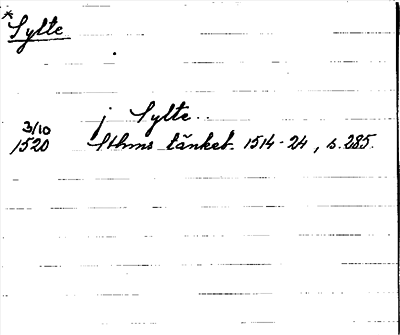 * Sylte
j Sylte..
3/10
1520 Sthms tänkeb. 1514-24, s. 285.